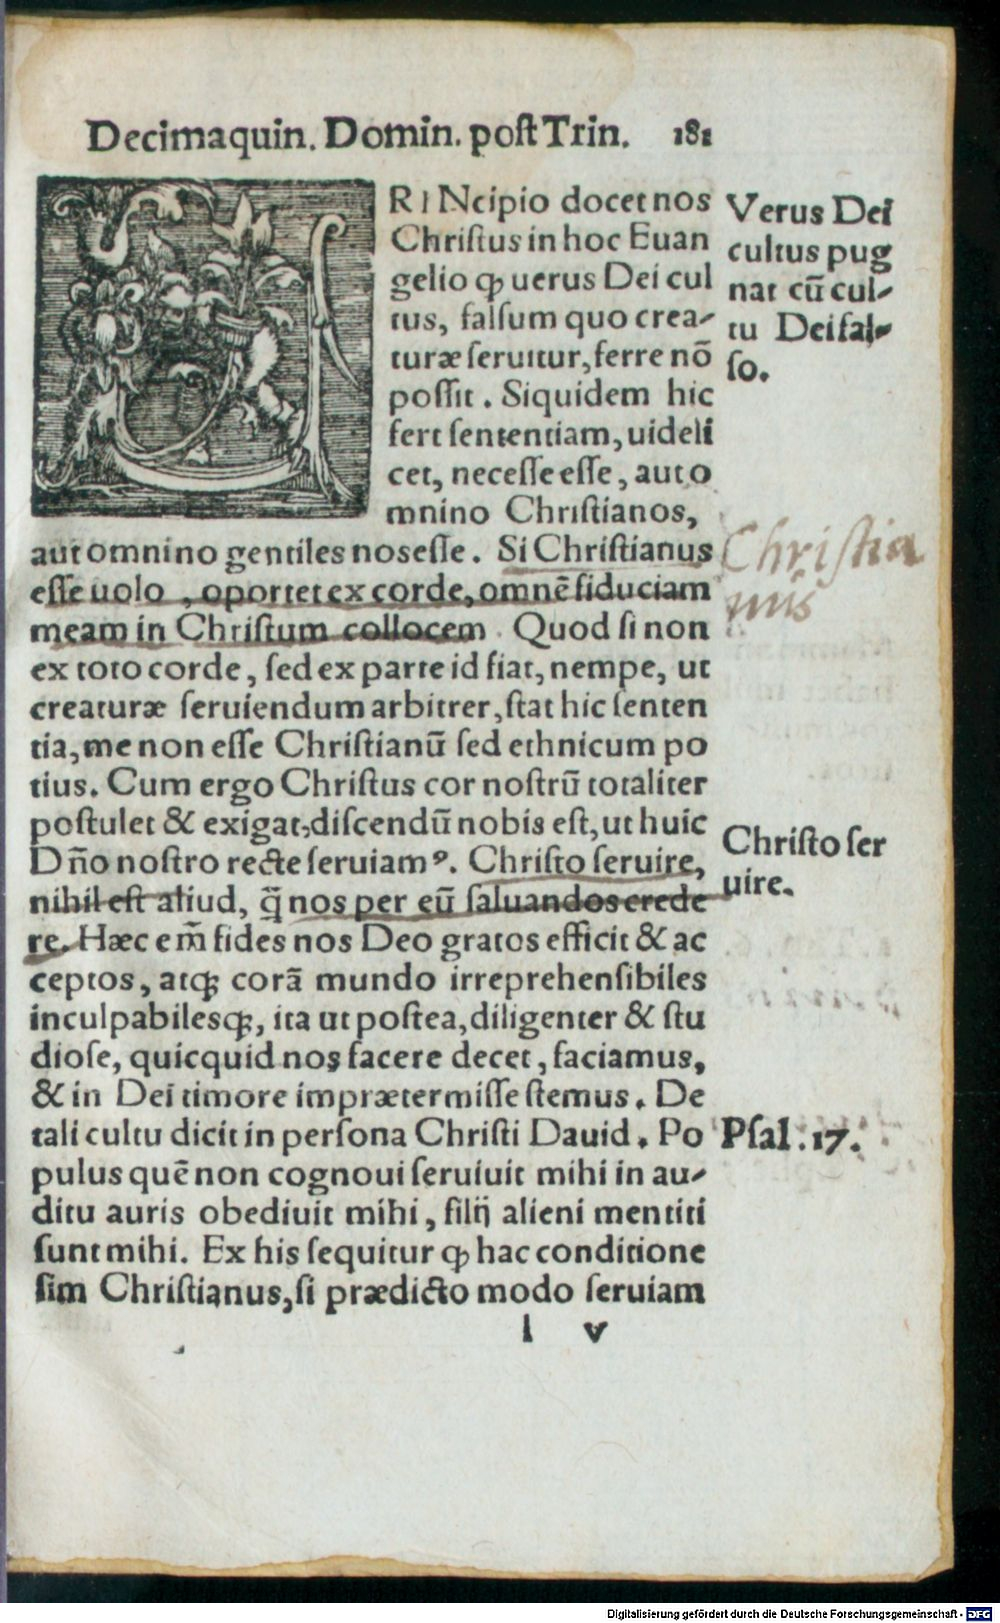 Decimaquin. Domin. post Trin. 181
RINcipio docet nos
Chriſtus in hoc Euan
gelio ꝙ uerus Dei cul
tus, falſum quo crea-
turæ ſeruitur, ferre nō
poſſit. Siquidem hic
fert ſententiam, uideli
cet, neceſſe eſſe, aut o
mnino Chriſtianos,
aut omnino gentiles nos eſſe. Si Chriſtianus
eſſe uolo, oportet ex corde, omnē fiduciam
meam in Chriſtum collocem. Quod ſi non
ex toto corde, ſed ex parte id fiat, nempe, ut
creaturæ ſeruiendum arbitrer, ſtat hic ſenten
tia, me non eſſe Chriſtianū ſed ethnicum po
tius. Cum ergo Chriſtus cor noſtrū totaliter
poſtulet & exigat, diſcendū nobis eſt, ut huic
Dño noſtro recte ſeruiamꝰ. Chriſto ſeruire,
nihil eſt aliud, q̄ nos per eū ſaluandos crede
re. Hæc em̄ fides nos Deo gratos efficit & ac
ceptos, atqꝫ corā mundo irreprehenſibiles
inculpabilesqꝫ, ita ut poſtea, diligenter & ſtu
dioſe, quicquid nos facere decet, faciamus,
& in Dei timore imprætermiſſe ſtemus. De
tali cultu dicit in perſona Chriſti Dauid. Po
pulus quē non cognoui ſeruiuit mihi in au-
ditu auris obediuit mihi, filij alieni mentiti
ſunt mihi. Ex his ſequitur ꝙ hac conditione
ſim Chriſtianus, ſi prædicto modo ſeruiam
l v
Verus Dei
cultus pug
nat cū cul-
tu Dei fal-
ſo.
Chriſtia
nus
Chriſto ſer
uire.
Pſal. 17.
Digitalisierung gefördert durch die Deutsche Forschungsgemeinschaft - DFG